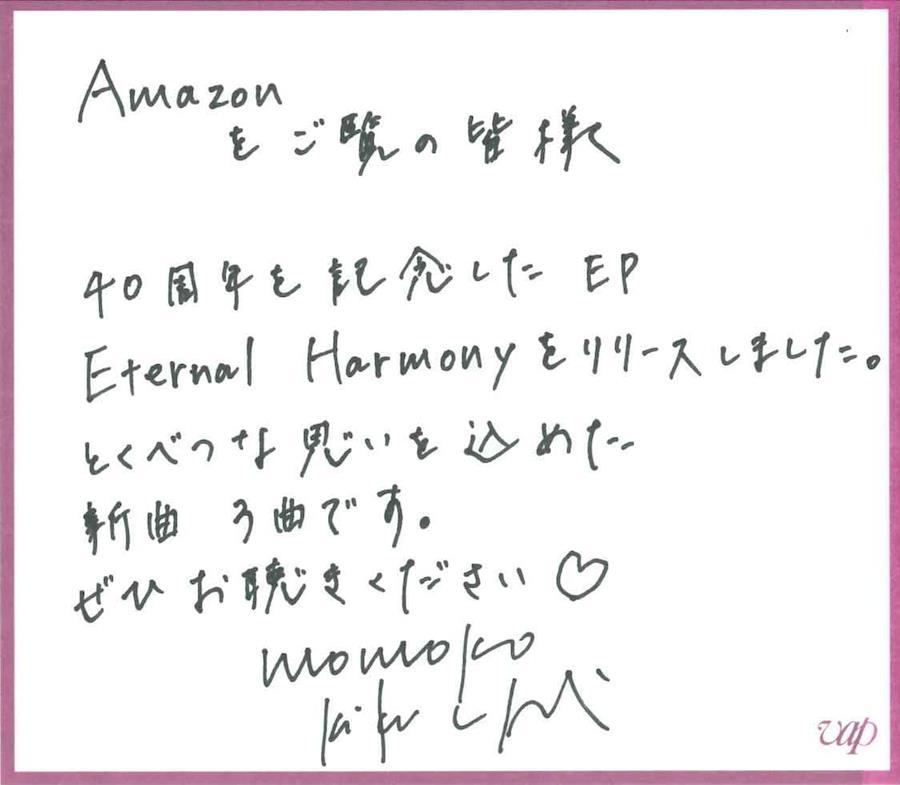 Amazon
をご覧の皆様
40周年を記念した EP
Eternal Harmonyをリリースしました。
とくべつな思いを込めた
新曲 3曲です。
ぜひお聴きください♡
momoko
kikuchi
vap